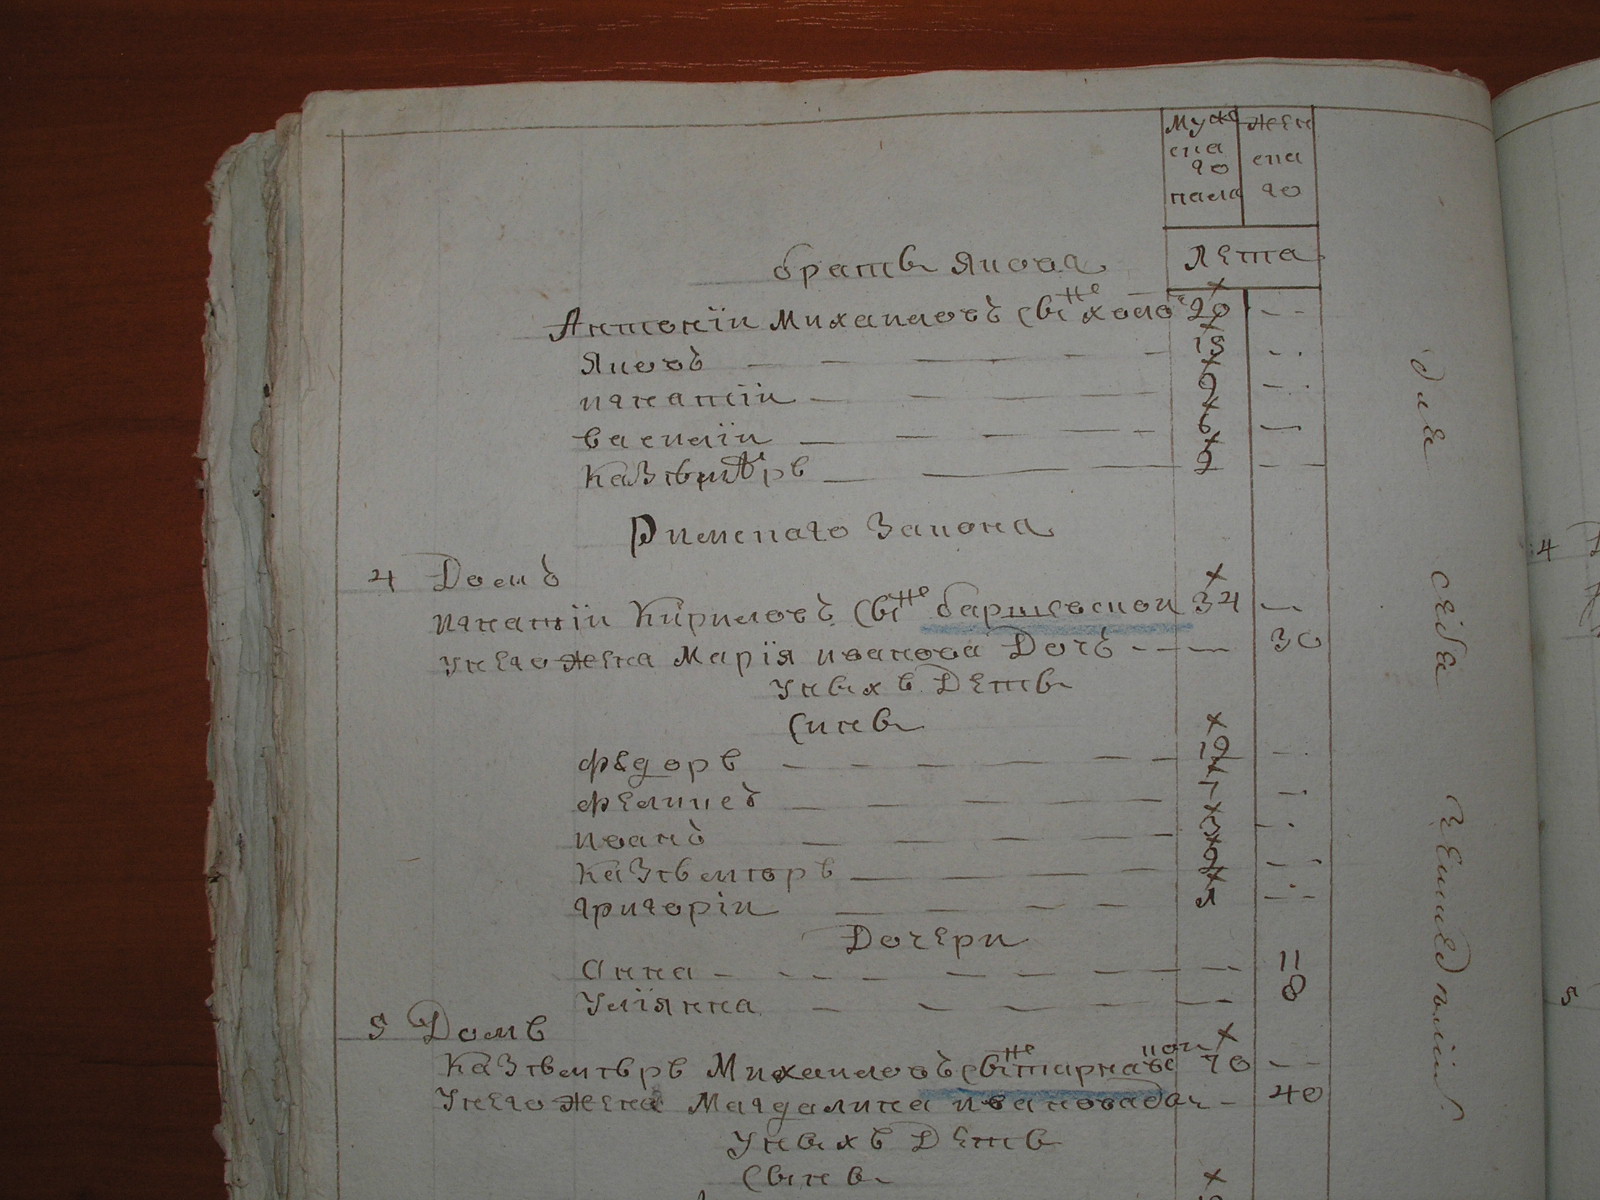 Мужеска го пола
Женска го
Лета
братъ Якова
Антоніи Михаиловъ сыне 20 - -
Яковъ 15 - -
игнатіи 9 - -
василіи 6 -
Казымѣръ 2 - -
Римскаго Закона
4 Домъ
игнатіи Кириловъ сыне баршевской 34 -
У него жена Марія иванова Дочь - - - 30
У нвıхъ Детв
Синв
федоръ 12 -
феликсъ 7 -
иванъ 3 -
Казывмıръ 2 -
григоріи 1 - -
Дочери
Анна - 11
Уліянна - 8
5 Домъ
Казывмıръ Михаиловъ сыне тарнавской 70 - -
У него жена Магдалина ивановадоч - 40
У нвıхъ Детв
Сынв
для себа
4
5